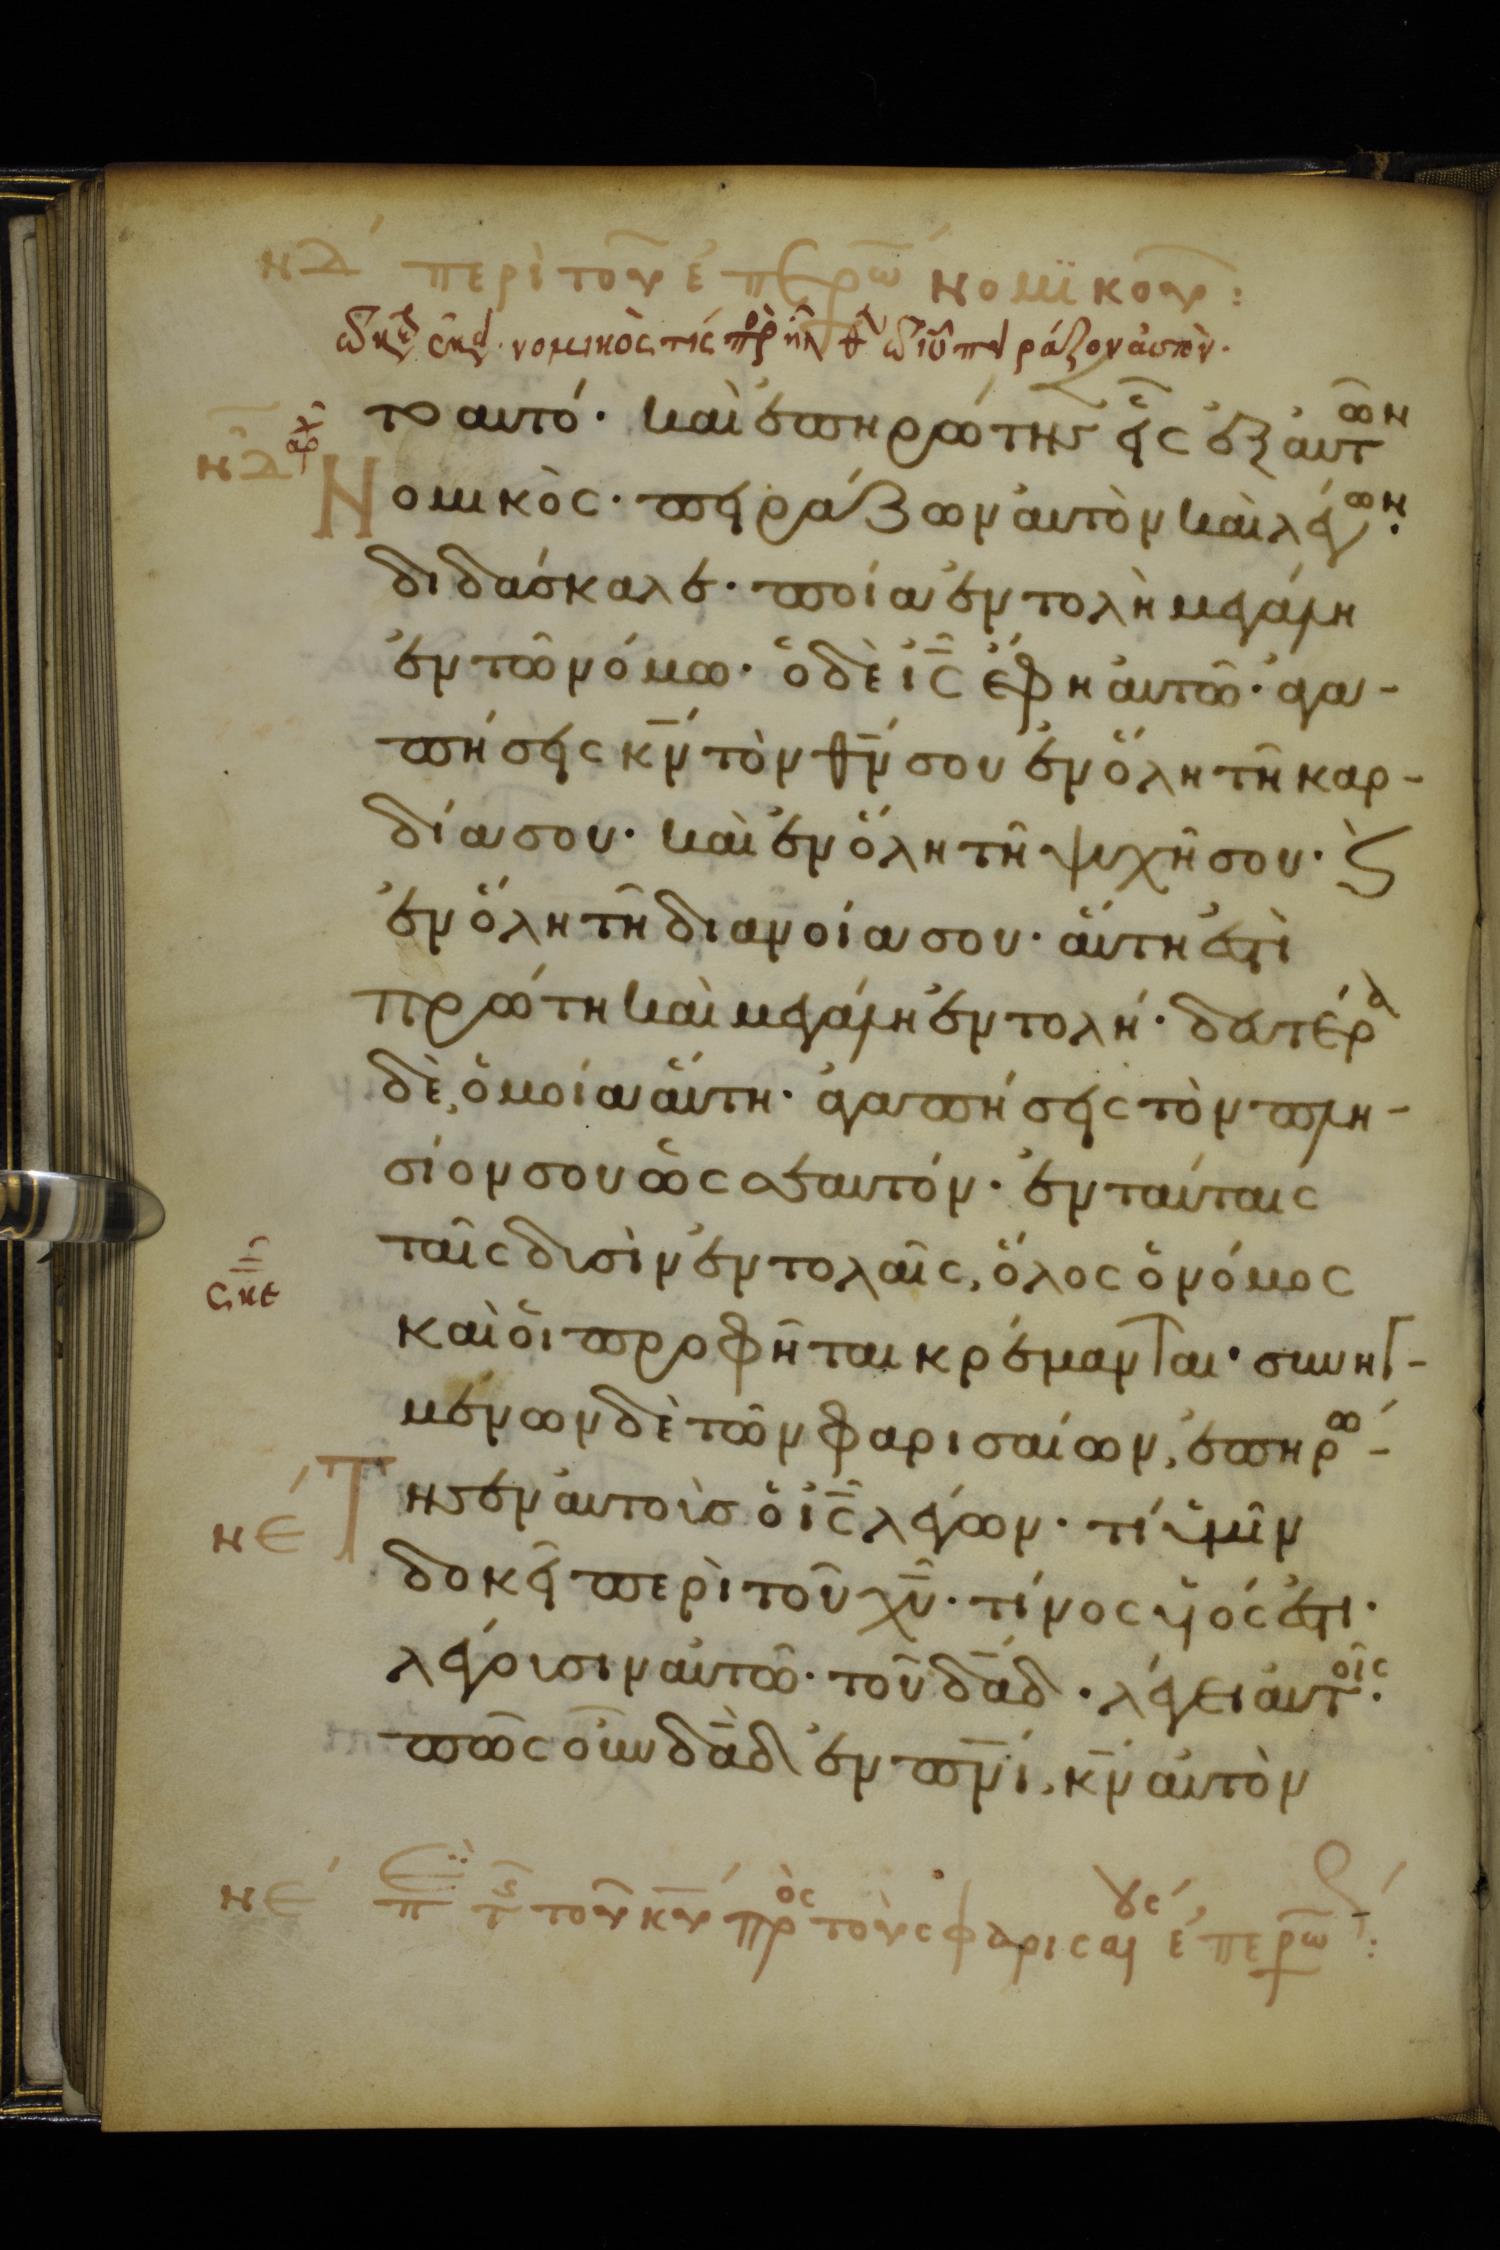 νδ΄ περὶ τοῦ ἐπερω νομϊκοῦ:
νομικὸς τίς πειράζον αὐτὸν.
το αυτό· καὶ ἐπηρώτησ εἷς ἐξ αὐτῶν
νδ Νομικὸς· πειράζων αὐτὸν καὶ λέγων·
διδάσκαλε· ποία ἐντολὴ μεγάλη
ἐν τῶ νόμω· ὁ δὲ ι̅ς̅ ἔφη αὐτῶ· ἀγα-
πήσεις κ̅ν̅ τὸν θ̅ν̅ σου ἐν ὅλη τῆ καρ-
δία σου· καὶ ἐν ὅλη τῆ ψυχῆ σου· ϗ
ἐν ὅλη τῆ διανοία σου· αὕτη ἐστὶ
πρώτη καὶ μεγάλη ἐντολή· δευτέρα
δὲ, ὁμοία αὕτη· ἀγαπήσεις τὸν πλη-
σίον σου ὡς σεαυτόν· ἐν ταύταις
ταῖς δυσὶν ἐντολαῖς, ὅλος ὁ νόμος
σκε
καὶ οἱ προφῆται κρέμανται· συνηγ-
μένων δὲ τῶν φαρισαίων, ἐπηρώ-
νε΄ Τησεν αυτοὶσ ὁ ι̅ς̅ λέγων· τί ὑμῖν
δοκεῖ περὶ τοῦ χ̅υ̅· τίνος υἱός ἐστι·
λέγουσιν αὐτῶ· τοῦ δ̅α̅δ̅· λέγει αὐτοῖς·
πῶς οὖν δ̅α̅δ̅ ἐν π̅ν̅ι̅, κ̅ν̅ αὐτὸν
νε΄ τοῦ κ̅υ̅ πρὸς τοὺς φαρισαίους ἐπερω: